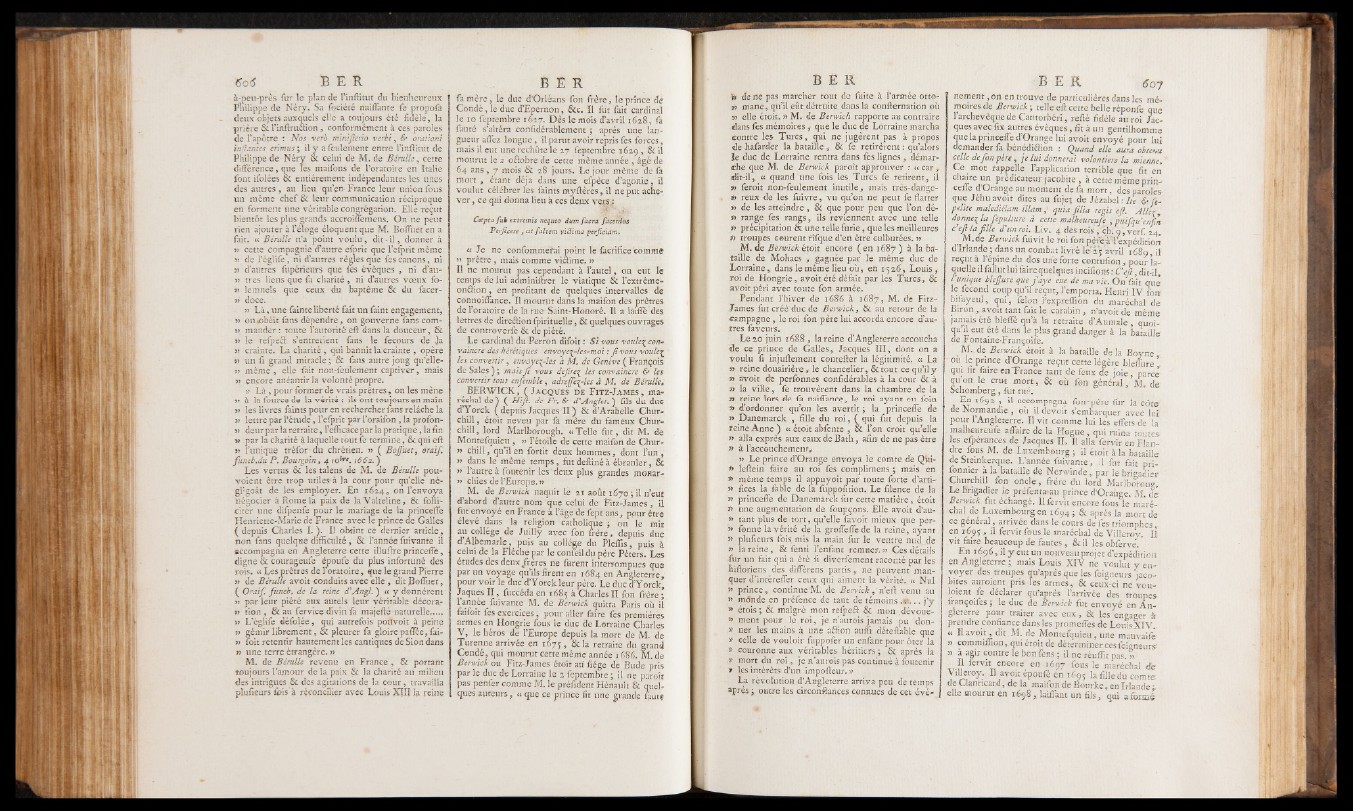 606 B E R
à-peu-près sur le plan de l'institut du bienheureux
Philippe de Néry. Sa société naissante se proposa
deux objets auxquels elle a toujours été fidèle, la
prière & l'instruction, conformément à ces paroles
de l'apôtre : Nos verò ministerio verbi, & orationi
instantes erimus; il y a seulement entre l'institut de
Philippe de Néry & celui de M. de Bérulle, cette
différence, que les maisons de l'oratoire en Italie
sont isolées & entièrement indépendantes les unes
des autres, au lieu qu'en France leur union sous
un même chef & leur communication réciproque
en forment une véritable congrégation. Elle reçut
bientôt les plus grands accroissemens. On ne peut
rien ajouter à l'éloge éloquent que M. Bossuet en a
fait. « Bérulle n'a point voulu, dit-il, donner à
» cette compagnie d'autre esprit que l'esprit même
» de l'église, ni d'autres règles que ses canons, ni
» d'autres supérieurs que ses évêques , ni d'au-
» tres liens que sa charité, ni d'autres vœux so-
» lemnels que ceux du baptême & du sacer-
» doce.
» Là, une sainte liberté fait un saint engagement,
» on obéit sans dépendre, on gouverne sans com-
» mander : toute l'autorité est dans la douceur, &
» le respect s'entretient sans le secours de la
» crainte. La charité, qui bannit la crainte, opère
» un si grand miracle; & sans autre joug qu'elle-
» même, elle sait non-seulement captiver, mais
» encore anéantir la volonté propre.
» Là, pour former de vrais prêtres, on les mène
» à la source de la vérité : ils ont toujours en main
» les livres saints pour en rechercher sans relâche la
» lettre par l'étude, l'esprit par l'oraison, la profon-
» deur par la retraite, l'efficace par la pratique, la fin
» par la charité à laquelle tout se termine, & qui est
» l'unique trésor du chrétien. » ( Bossuet, orais.
funèb. du P. Bourgoin, 4 xbre. 1662.)
Les vertus & les talens de M. de Bérulle pou-
voient être trop utiles à la cour pour qu'elle né-
gligeât de les employer. En 1624, on l'envoya
négocier à Rome la paix de la Valteline, & solli-
citer une dispense pour le mariage de la princesse
Henriette-Marie de France avec le prince de Galles
( depuis Charles I. ). Il obtint ce dernier article,
non sans quelque difficulté, & l'année suivante il
accompagna en Angleterre cette illustre princesse,
digne & courageuse épouse du plus infortuné des
rois. « Les prêtres de l'oratoire, que le grand Pierre
» de Bérulle avoit conduits avec elle, dit Bossuet,
( Orais. funèb. de la reine d'Angl.) « y donnèrent
» par leur piété aux autels leur véritable décora-
» tion, & au service divin sa majesté naturelle....
» L'église désolée, qui autrefois pouvoit à peine
» gémir librement, & pleurer sa gloire passée, fai-
» soit retentir hautement les cantiques de Sion dans
» une terre étrangère. »
M. de Bérulle revenu en France, & portant
toujours l'amour de la paix & la charité au milieu
des intrigues & des agitations de la cour, travailla
plusieurs fois à réconcilier avec Louis XIII la reine
B E R
sa mère, le duc d'Orléans son frère, le prince de
Condé, le duc d'Epernon, &c. Il fut fait cardinal
le 10 septembre 1627. Dès le mois d'avril 1628, sa
santé s'altéra considérablement ; après une lan-
gueur assez longue, il parut avoir repris ses forces,
mais il eut une rechûte le 27 septembre 1629, & il
mourut le 2 octobre de cette même année, âgé de
64 ans, 7 mois & 28 jours. Le jour même de sa
mort, étant déja dans une espèce d'agonie, il
voulut célébrer les saints mystères, il ne put ache-
ver, ce qui donna lieu à ces deux vers :
Cæpta sub extremis nequeo dum sacra sacerdos
Perficere, at saltem victima perficiam.
« Je ne consommerai point le sacrifice comme
» prêtre, mais comme victime. »
Il ne mourut pas cependant à l'autel, on eut le
temps de lui administrer le viatique & l'extrême-
onction, en profitant de quelques intervalles de
connoissance. Il mourut dans la maison des prêtres
de l'oratoire de la rue Saint-Honoré. Il a laissé des
lettres de direction spirituelle, & quelques ouvrages
de controverse & de piété.
Le cardinal du Perron disoit : Si vous voulez con-
vaincre des hérétiques envoyez-les-moi ; si vous voulez
les convertir, envoyez-les à M. de Genève ( François
de Sales ) ; mais si vous desirez les convaincre & les
convertir tout ensemble, adressez-les à M. de Bérulle.
BERWICK, ( JACQUES DE FITZ-JAMES, ma-
réchal de ) ( Hist. de Fr. & d'Anglet. ) fils du duc
d'Yorck ( depuis Jacques II ) & d'Arabelle Chur-
chill, étoit neveu par sa mère du fameux Chur-
chill, lord Marlborough. « Telle fut, dit M. de
Montesquieu, » l'étoile de cette maison de Chur-
» chill, qu'il en sortit deux hommes, dont l'un,
» dans le même temps, fut destiné à ébranler, &
» l'autre à soutenir les deux plus grandes monar-
» chies de l'Europe. »
M. de Berwick naquit le 21 août 1670 ; il n'eut
d'abord d'autre nom que celui de Fitz-James, il
fut envoyé en France à l'âge de sept ans, pour être
élevé dans la religion catholique ; on le mit
au collége de Juilly avec son frère, depuis duc
d'Albemarle, puis au collége du Plessis, puis à
celui de la Flèche par le conseil du père Péters. Les
études des deux frères ne furent interrompues que
par un voyage qu'ils firent en 1684 en Angleterre,
pour voir le duc d'Yorck leur père. Le duc d'Yorck,
Jaques II, succéda en 1685 à Charles II son frère ;
l'année suivante M. de Berwick quitta Paris où il
faisoit ses exercices, pour aller faire ses premières
armes en Hongrie sous le duc de Lorraine Charles
V, le héros de l'Europe depuis la mort de M. de
Turenne arrivée en 1675, & la retraite du grand
Condé, qui mourut cette même année 1686. M. de
Berwick ou Fitz-James étoit au siége de Bude pris
par le duc de Lorraine le 2 septembre ; il ne paroît
pas penser comme M. le président Hénault & quel-
ques auteurs, « que ce prince fit une grande faute
B E R
» de ne pas marcher tout de suite à l'armée otto-
» mane, qu'il eût détruite dans la consternation où
» elle étoit. » M. de Berwick rapporte au contraire
dans ses mémoires, que le duc de Lorraine marcha
contre les Turcs, qui ne jugèrent pas à propos
de hasarder la bataille, & se retirèrent : qu'alors
le duc de Lorraine rentra dans ses lignes, démar-
che que M. de Berwick paroît approuver : « car,
dit-il, « quand une fois les Turcs se retirent, il
» seroit non-seulement inutile, mais très-dange-
» reux de les suivre, vu qu'on ne peut se flatter
» de les atteindre, & que pour peu que l'on dé-
» range ses rangs, ils reviennent avec une telle
» précipitation & une telle furie, que les meilleures
» troupes courent risque d'en être culbutées. »
M. de Berwick étoit encore ( en 1687 ) à la ba-
taille de Mohacs , gagnée par le même duc de
Lorraine, dans le même lieu où, en 1526, Louis,
roi de Hongrie, avoit été défait par les Turcs, &
avoit péri avec toute son armée.
Pendant l'hiver de 1686 à 1687, M. de Fitz-
James fut créé duc de Berwick, & au retour de la
campagne, le roi son père lui accorda encore d'au-
tres faveurs.
Le 20 juin 1688, la reine d'Angleterre accoucha
de ce prince de Galles, Jacques III, dont on a
voulu si injustement contester la légitimité. « La
» reine douairière, le chancelier, & tout ce qu'il y
» avoit de personnes considérables à la cour & à
» la ville, se trouvèrent dans la chambre de la
» reine lors de sa naissance, le roi ayant eu soin
» d'ordonner qu'on les avertît ; la princesse de
» Danemarck , fille du roi, ( qui fut depuis la
reine Anne ) « étoit absente , & l'on croit qu'elle
» alla exprès aux eaux de Bath, afin de ne pas être
» à l'accouchement.
» Le prince d'Orange envoya le comte de Qui-
» lestein faire au roi ses complimens ; mais en
» même temps il appuyoit par toute sorte d'arti-
» fices la fable de la supposition. Le silence de la
» princesse de Danemarck sur cette matière, étoit
» une augmentation de soupçons. Elle avoit d'au-
» tant plus de tort, qu'elle savoit mieux que per-
» sonne la vérité de la grossesse de la reine, ayant
» plusieurs fois mis la main sur le ventre nud de
» la reine, & senti l'enfant remuer. » Ces détails
sur un fait qui a été si diversement raconté par les
historiens des différens partis, ne peuvent man-
quer d'intéresser ceux qui aiment la vérité. « Nul
» prince, continue M. de Berwick, n'est venu au
» monde en présence de tant de témoins.... j'y
» étois ; & malgré mon respect & mon dévoue-
» ment pour le roi, je n'aurois jamais pu don-
» ner les mains à une action aussi détestable que
» celle de vouloir supposer un enfant pour ôter la
» couronne aux véritables héritiers ; & après la
» mort du roi, je n'aurois pas continué à soutenir
» les intérêts d'un imposteur. »
La révolution d'Angleterre arriva peu de temps
après ; outre les circonstances connues de cet évé-
B E R 607
nement, on en trouve de particulières dans les mé-
moires de Berwick ; telle est cette belle réponse que
l'archevêque de Cantorbéri, resté fidèle au roi Jac-
ques avec six autres évêques, fit à un gentilhomme
que la princesse d'Orange lui avoit envoyé pour lui
demander sa bénédiction : Quand elle aura obtenu
celle de son père, je lui donnerai volontiers la mienne.
Ce mot rappelle l'application terrible que fit en
chaire un prédicateur jacobite, à cette même prin-
cesse d'Orange au moment de sa mort, des paroles
que Jéhu avoit dites au sujet de Jézabel : Ite & se-
pelite maledictam illam, quia filia regis est. Allez,
donnez la sépulture à cette malheureuse, puisqu'enfin
c'est la fille d'un roi. Liv. 4 des rois, ch. 9, verf. 24.
M. de Berwick suivit le roi son père à l'expédition
d'Irlande ; dans un combat livré le 25 avril 1689, il
reçut à l'épine du dos une forte contusion, pour la-
quelle il fallut lui faire quelques incisions : C'est, dit-il,
l'unique blessure que j'aye eue de ma vie. On sait que
le second coup qu'il reçut, l'emporta. Henri IV son
bisayeul, qui, selon l'expression du maréchal de
Biron, avoit tant fait le carabin, n'avoit de même
jamais été blessé qu'à la retraite d'Aumale, quoi-
qu'il eût été dans le plus grand danger à la bataille
de Fontaine-Françoise.
M. de Berwick étoit à la bataille de la Boyne,
où le prince d'Orange reçut cette légère blessure,
qui fit faire en France tant de feux de joie, parce
qu'on le crut mort, & où son général, M. de
Schomberg, fut tué.
En 1692, il accompagna son père sur la côte
de Normandie, où il devoit s'embarquer avec lui
pour l'Angleterre. Il vit comme lui les effets de la
malheureuse affaire de la Hogue, qui ruina toutes
les espérances de Jacques II. Il alla servir en Flan-
dre sous M. de Luxembourg ; il étoit à la bataille
de Steinkerque. L'année suivante, il fut fait pri-
sonnier à la bataille de Nerwinde, par le brigadier
Churchill son oncle, frère du lord Marlboroug.
Le Brigadier le présenta au prince d'Orange. M. de
Berwick fut échangé. Il servit encore sous le maré-
chal de Luxembourg en 1694 ; & après la mort de
ce général, arrivée dans le cours de ses triomphes,
en 1695, il servit sous le maréchal de Villeroy. Il
vit faire beaucoup de fautes, & il les observa.
En 1696, il y eut un nouveau projet d'expédition
en Angleterre ; mais Louis XIV ne voulut y en-
voyer des troupes qu'après que les seigneurs jaco-
bites auroient pris les armes, & ceux-ci ne vou-
loient se déclarer qu'après l'arrivée des troupes
françoises ; le duc de Berwick fut envoyé en An-
gleterre pour traiter avec eux, & les engager à
prendre confiance dans les promesses de Louis XIV.
« Il avoit, dit M. de Montesquieu, une mauvaise
» commission, qui étoit de déterminer ces seigneurs
» à agir contre le bon sens ; il ne réussit pas. »
Il servit encore en 1697 sous le maréchal de
Villeroy. Il avoit épousé en 1695 la fille du comte
de Clanricard, de la maison de Bourke, en Irlande ;
elle mourut en 1698, laissant un fils, qui a formé